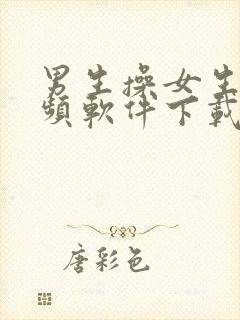 男生操女生
頻軟件下載
唐彩色